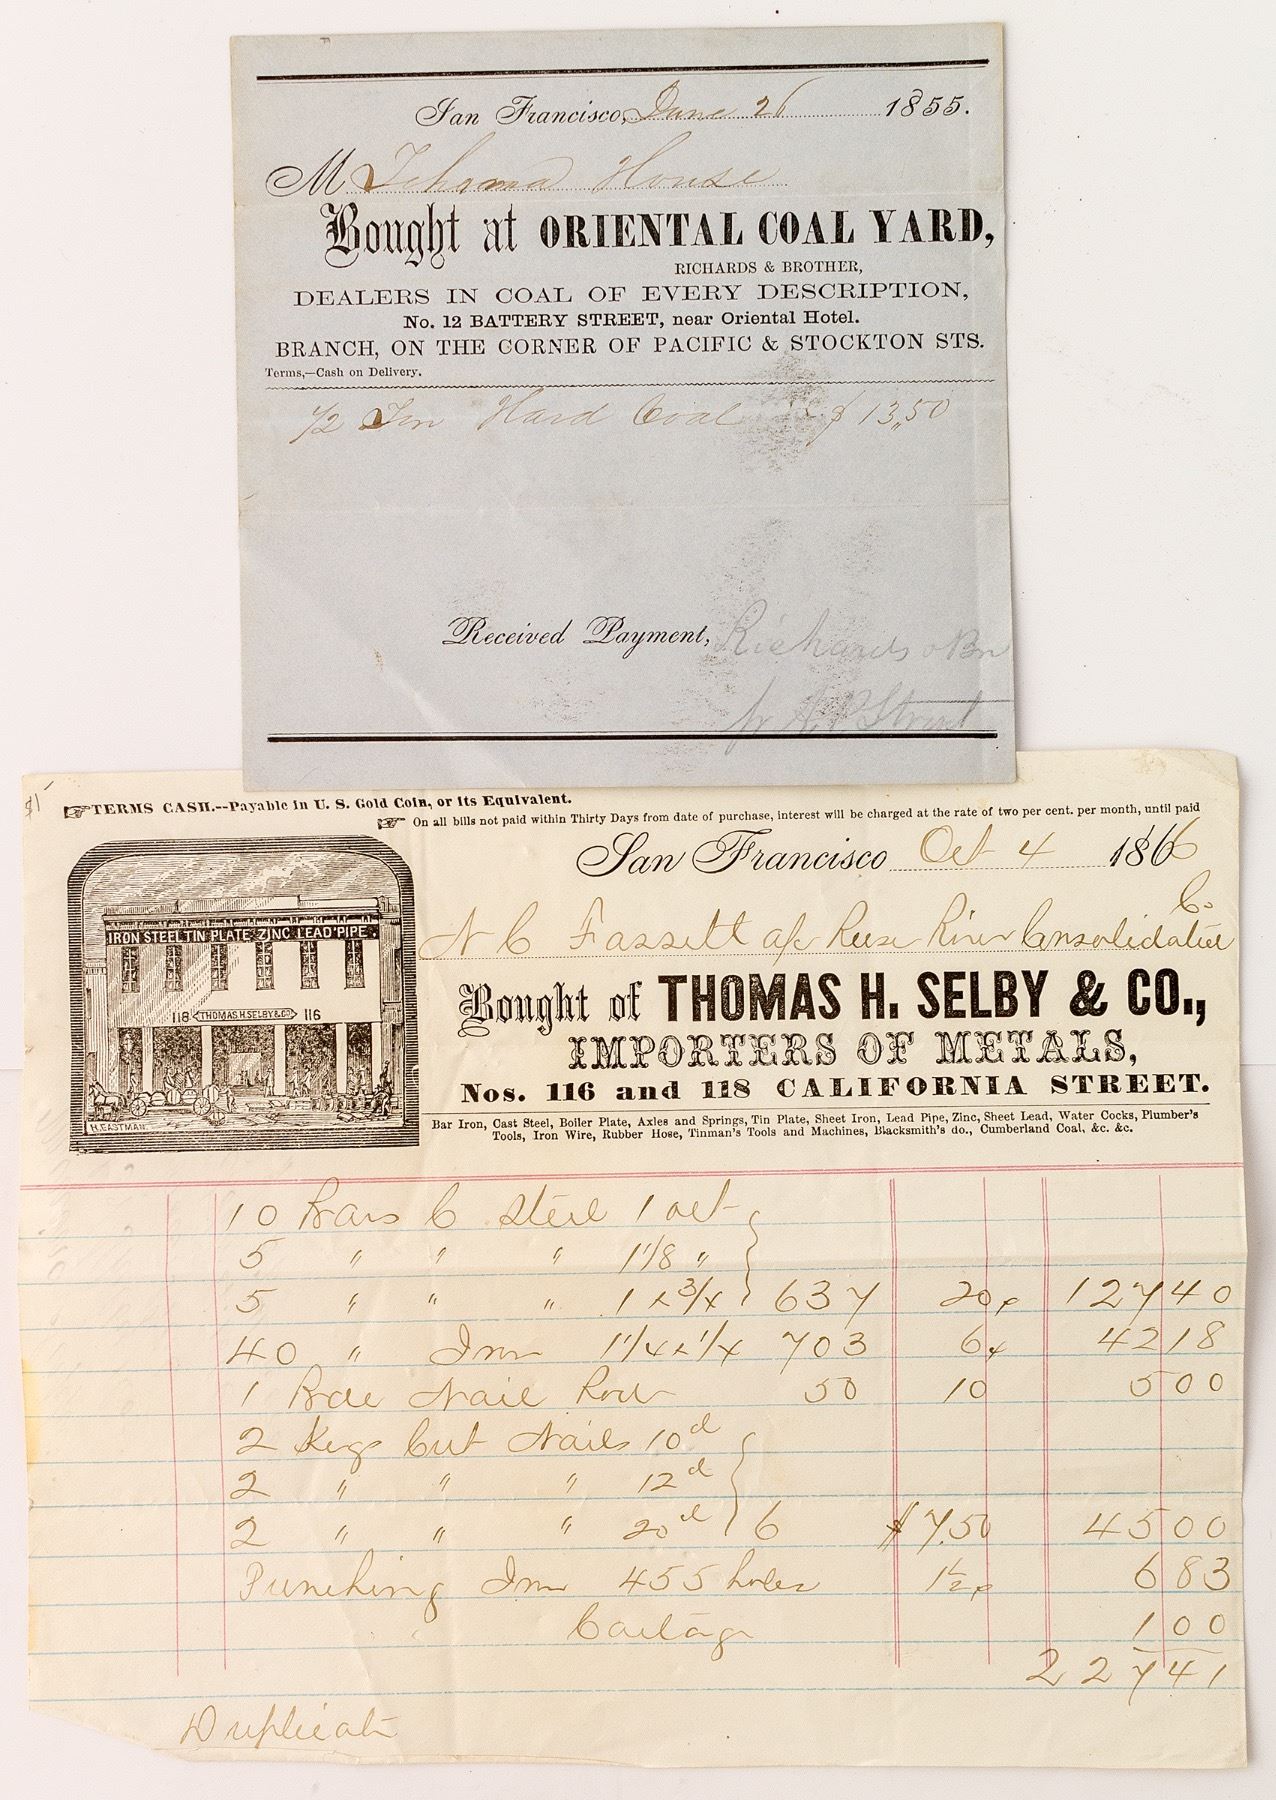 San Francisco, June 26 1855.
M Tehama House
Bought at ORIENTAL COAL YARD,
RICHARDS & BROTHER,
DEALERS IN COAL OF EVERY DESCRIPTION,
No. 12 BATTERY STREET, near Oriental Hotel.
BRANCH, ON THE CORNER OF PACIFIC & STOCKTON STS.
Terms,—Cash on Delivery.
1/2 Ton Hard Coal $13,50
Received Payment, Richards & Bro
pr A. P. Street
$1
☞TERMS CASH.--Payable in U. S. Gold Coin, or its Equivalent.
☞ On all bills not paid within Thirty Days from date of purchase, interest will be charged at the rate of two per cent. per month, until paid
San Francisco Oct 4 1866
N C Fassett a/c Reese River Consolidated Co
IRON STEEL TIN PLATE ZINC LEAD PIPE.
118 THOMAS.H.SELBY & CO 116
H.EASTMAN.
Bought of THOMAS H. SELBY & CO.,
IMPORTERS OF METALS,
Nos. 116 and 118 CALIFORNIA STREET.
Bar Iron, Cast Steel, Boiler Plate, Axles and Springs, Tin Plate, Sheet Iron, Lead Pipe, Zinc, Sheet Lead, Water Cocks, Plumber's
Tools, Iron Wire, Rubber Hose, Tinman's Tools and Machines, Blacksmith's do., Cumberland Coal, &c. &c.
10 Bars C Steel 1 oct
5 " " " 1 1/8 "
5 " " " 1 x 3/4 637 20c 127 40
40 " Iron 1 1/4 x 1/4 703 6c 42 18
1 Bdle Nail Rod 50 10 5 00
2 Kegs Cut Nails 10d
2 " " " 12d
2 " " " 20d 6 $7.50 45 00
Punching Iron 455 holes 1 1/2c 6 83
Cartage 1 00
227 41
Duplicate